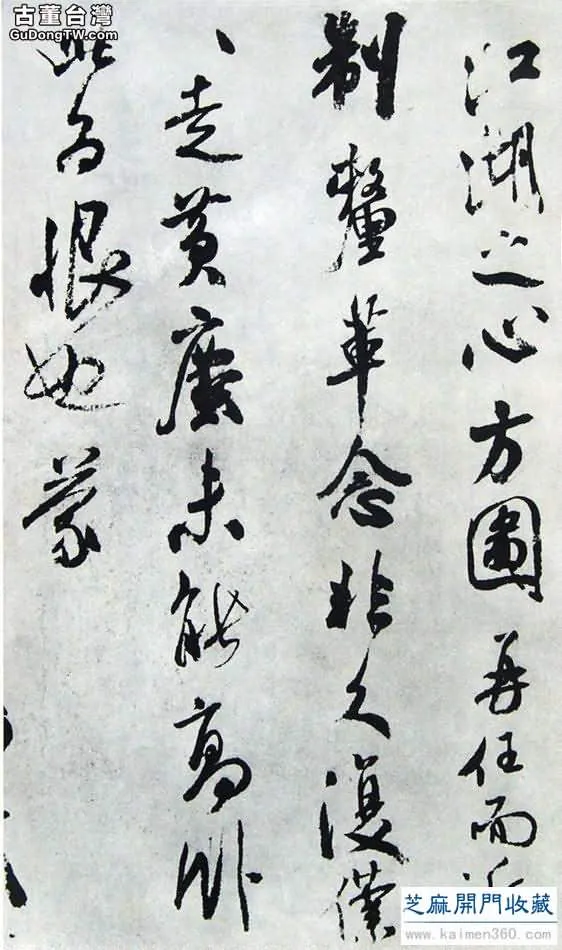 古董台灣
GuDongTW.com
江湖之心方圖再任而近
制釐革念非久復僕
、走黃塵未能高卧
此為恨也蒙
芝麻開門收藏
www.kaimen360.com